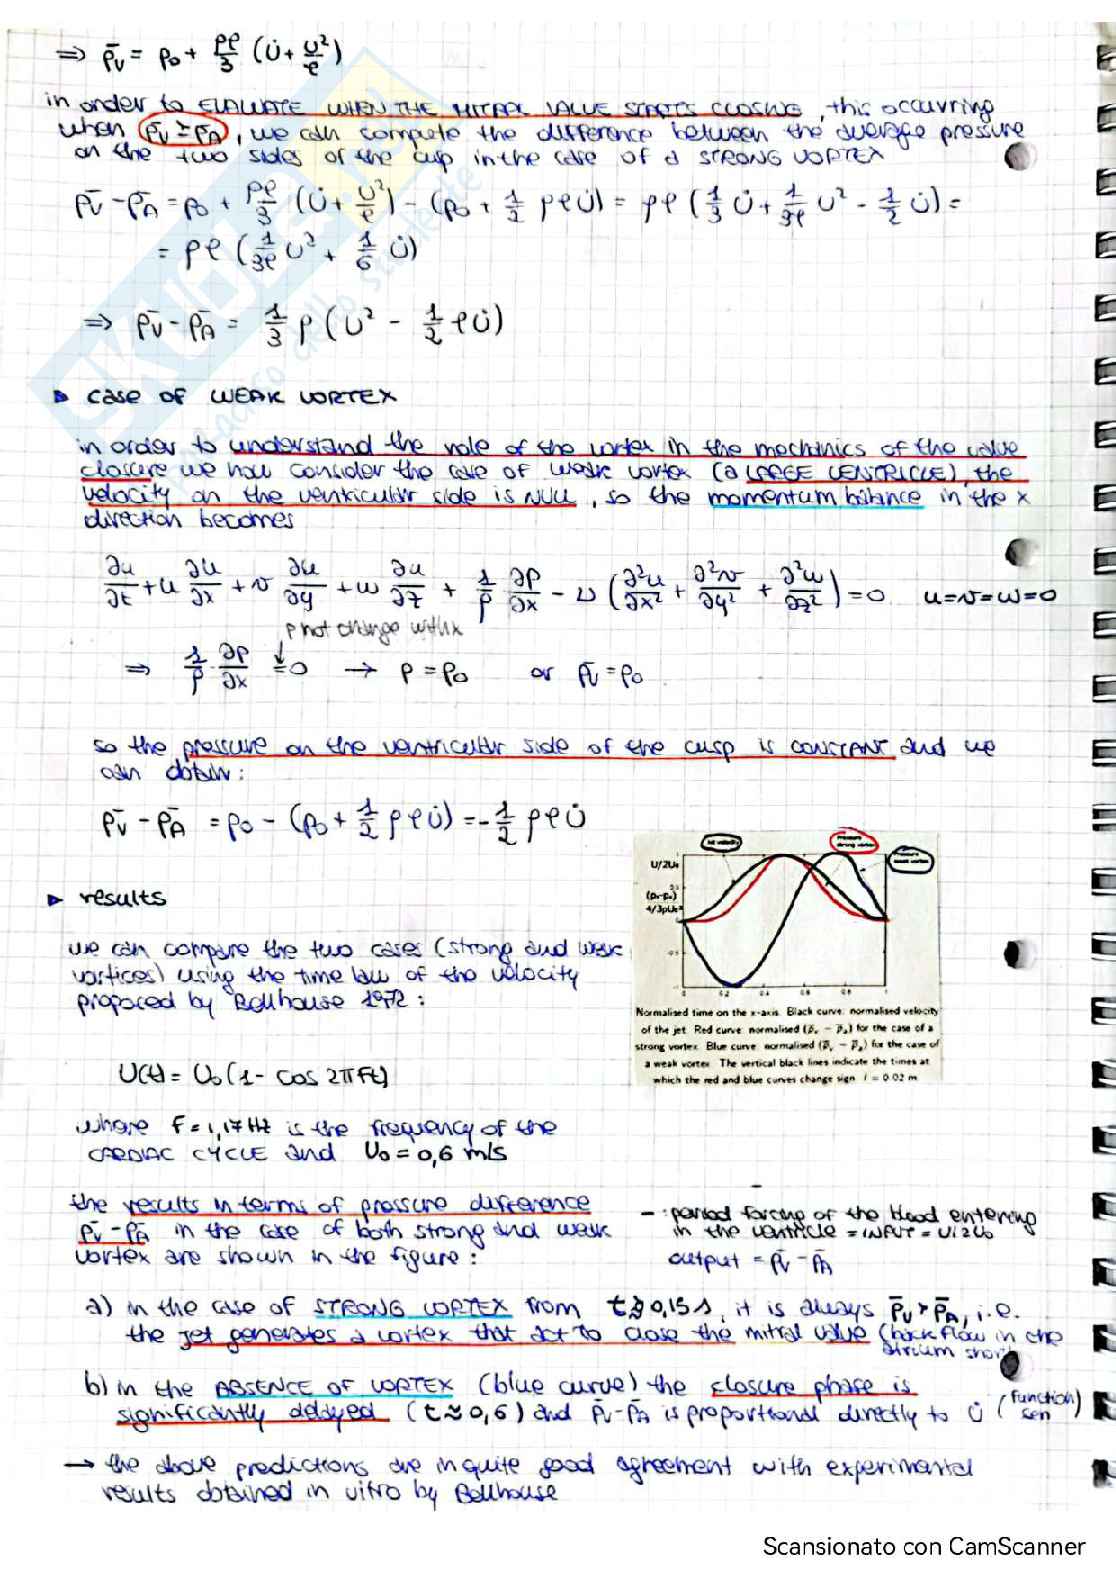 ⇒ p̄v = p0 + ρℓ/3 (U̇ + U²/ℓ)
in order to EVALUATE WHEN THE MITRAL VALVE STARTS CLOSING, this occurring
when p̄v ≥ p̄A, we can compute the difference between the average pressure
on the two sides of the cusp in the case of a STRONG VORTEX
p̄v - p̄A = p0 + ρℓ/3 (U̇ + U²/ℓ) - (p0 + 1/2 ρℓU̇) = ρℓ (1/3 U̇ + 1/3ℓ U² - 1/2 U̇) =
= ρℓ (1/3ℓ U² + 1/6 U̇)
⇒ p̄v - p̄A = 1/3 ρ (U² - 1/2 ℓU̇)
▸ case of WEAK VORTEX
in order to understand the role of the vortex in the mechanics of the valve
closure we now consider the case of weak vortex (a LARGE VENTRICLE), the
velocity on the ventricular side is NULL, so the momentum balance in the x
direction becomes
∂u/∂t + u ∂u/∂x + v ∂u/∂y + w ∂u/∂z + 1/ρ ∂p/∂x - ν (∂²u/∂x² + ∂²v/∂y² + ∂²w/∂z²) = 0 u=v=w=0
p not change with x
⇒ 1/ρ ∂p/∂x = 0 → p = p0 or p̄v = p0
so the pressure on the ventricular side of the cusp is CONSTANT and we
can obtain:
p̄v - p̄A = p0 - (p0 + 1/2 ρℓU̇) = -1/2 ρℓU̇
Jet velocity
Pressure strong vortex
Pressure weak vortex
U/2U0
(pv-pa)
4/3ρU0²
0
0.2
0.4
0.6
0.8
1
Normalised time on the x-axis. Black curve: normalised velocity
of the jet. Red curve: normalised (p̄v − p̄a) for the case of a
strong vortex. Blue curve: normalised (p̄v − p̄a) for the case of
a weak vortex. The vertical black lines indicate the times at
which the red and blue curves change sign. l = 0.02 m
▸ results
we can compare the two cases (strong and weak
vortices) using the time law of the velocity
proposed by Bellhouse 1972:
U(t) = U0 (1 - cos 2πFt)
where F = 1,17 Hz is the frequency of the
CARDIAC CYCLE and U0 = 0,6 m/s
the results in terms of pressure difference
p̄v - p̄A in the case of both strong and weak
vortex are shown in the figure:
- period forcing of the blood entering
in the ventricle = INPUT = U/2U0
output = p̄v - p̄A
a) in the case of STRONG VORTEX from t≈0,15s, it is always p̄v > p̄A, i.e.
the jet generates a vortex that act to close the mitral valve (back flow in the
atrium short)
b) in the ABSENCE OF VORTEX (blue curve) the closure phase is
significantly delayed (t≈0,6) and p̄v-p̄A is proportional directly to U̇ (function sen)
→ the above predictions are in quite good agreement with experimental
results obtained in vitro by Bellhouse
Scansionato con CamScanner